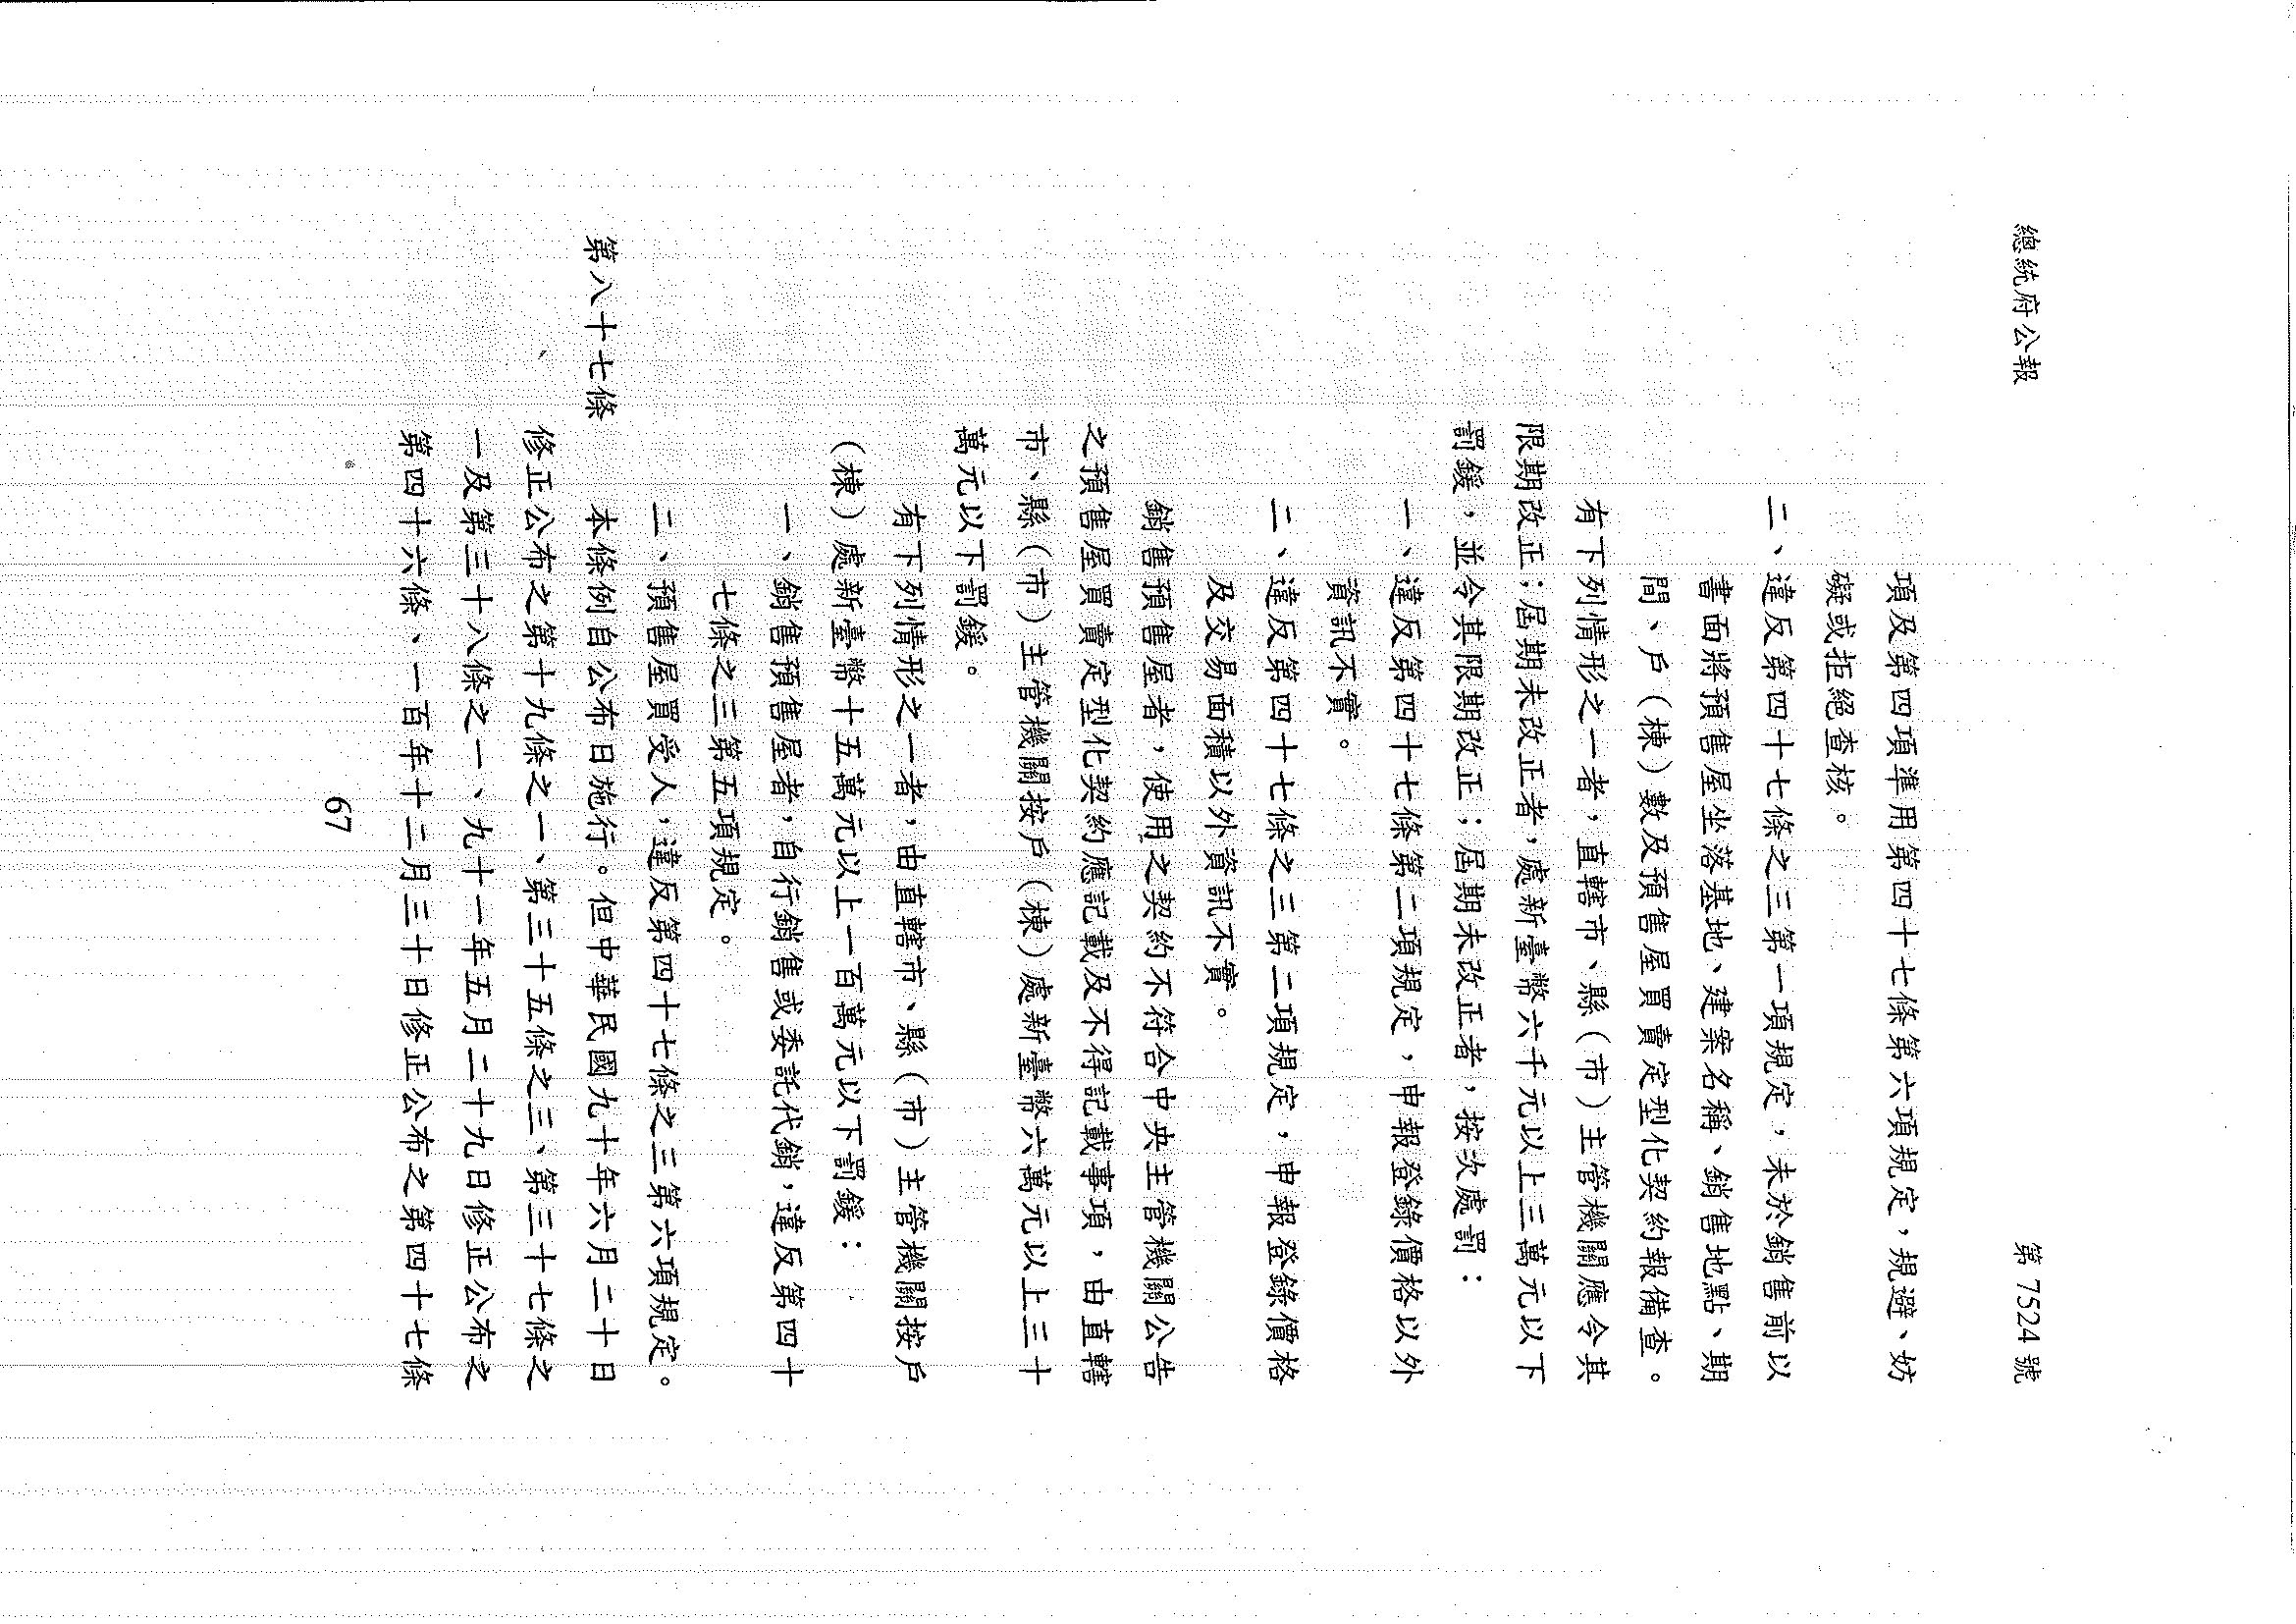 總統府公報
第 7524 號
項及第四項準用第四十七條第六項規定，規避、妨
礙或拒絕查核。
二、違反第四十七條之三第一項規定，未於銷售前以
書面將預售屋坐落基地、建案名稱、銷售地點、期
間、戶（棟）數及預售屋買賣定型化契約報備查。
有下列情形之一者，直轄市、縣（市）主管機關應令其
限期改正；屆期未改正者，處新臺幣六千元以上三萬元以下
罰鍰，並令其限期改正；屆期未改正者，按次處罰：
一、違反第四十七條第二項規定，申報登錄價格以外
資訊不實。
二、違反第四十七條之三第二項規定，申報登錄價格
及交易面積以外資訊不實。
銷售預售屋者，使用之契約不符合中央主管機關公告
之預售屋買賣定型化契約應記載及不得記載事項，由直轄
市、縣（市）主管機關按戶（棟）處新臺幣六萬元以上三十
萬元以下罰鍰。
有下列情形之一者，由直轄市、縣（市）主管機關按戶
（棟）處新臺幣十五萬元以上一百萬元以下罰鍰：
一、銷售預售屋者，自行銷售或委託代銷，違反第四十
七條之三第五項規定。
二、預售屋買受人，違反第四十七條之三第六項規定。
第八十七條　本條例自公布日施行。但中華民國九十年六月二十日
修正公布之第十九條之一、第三十五條之三、第三十七條之
一及第三十八條之一、九十一年五月二十九日修正公布之
第四十六條、一百年十二月三十日修正公布之第四十七條
67